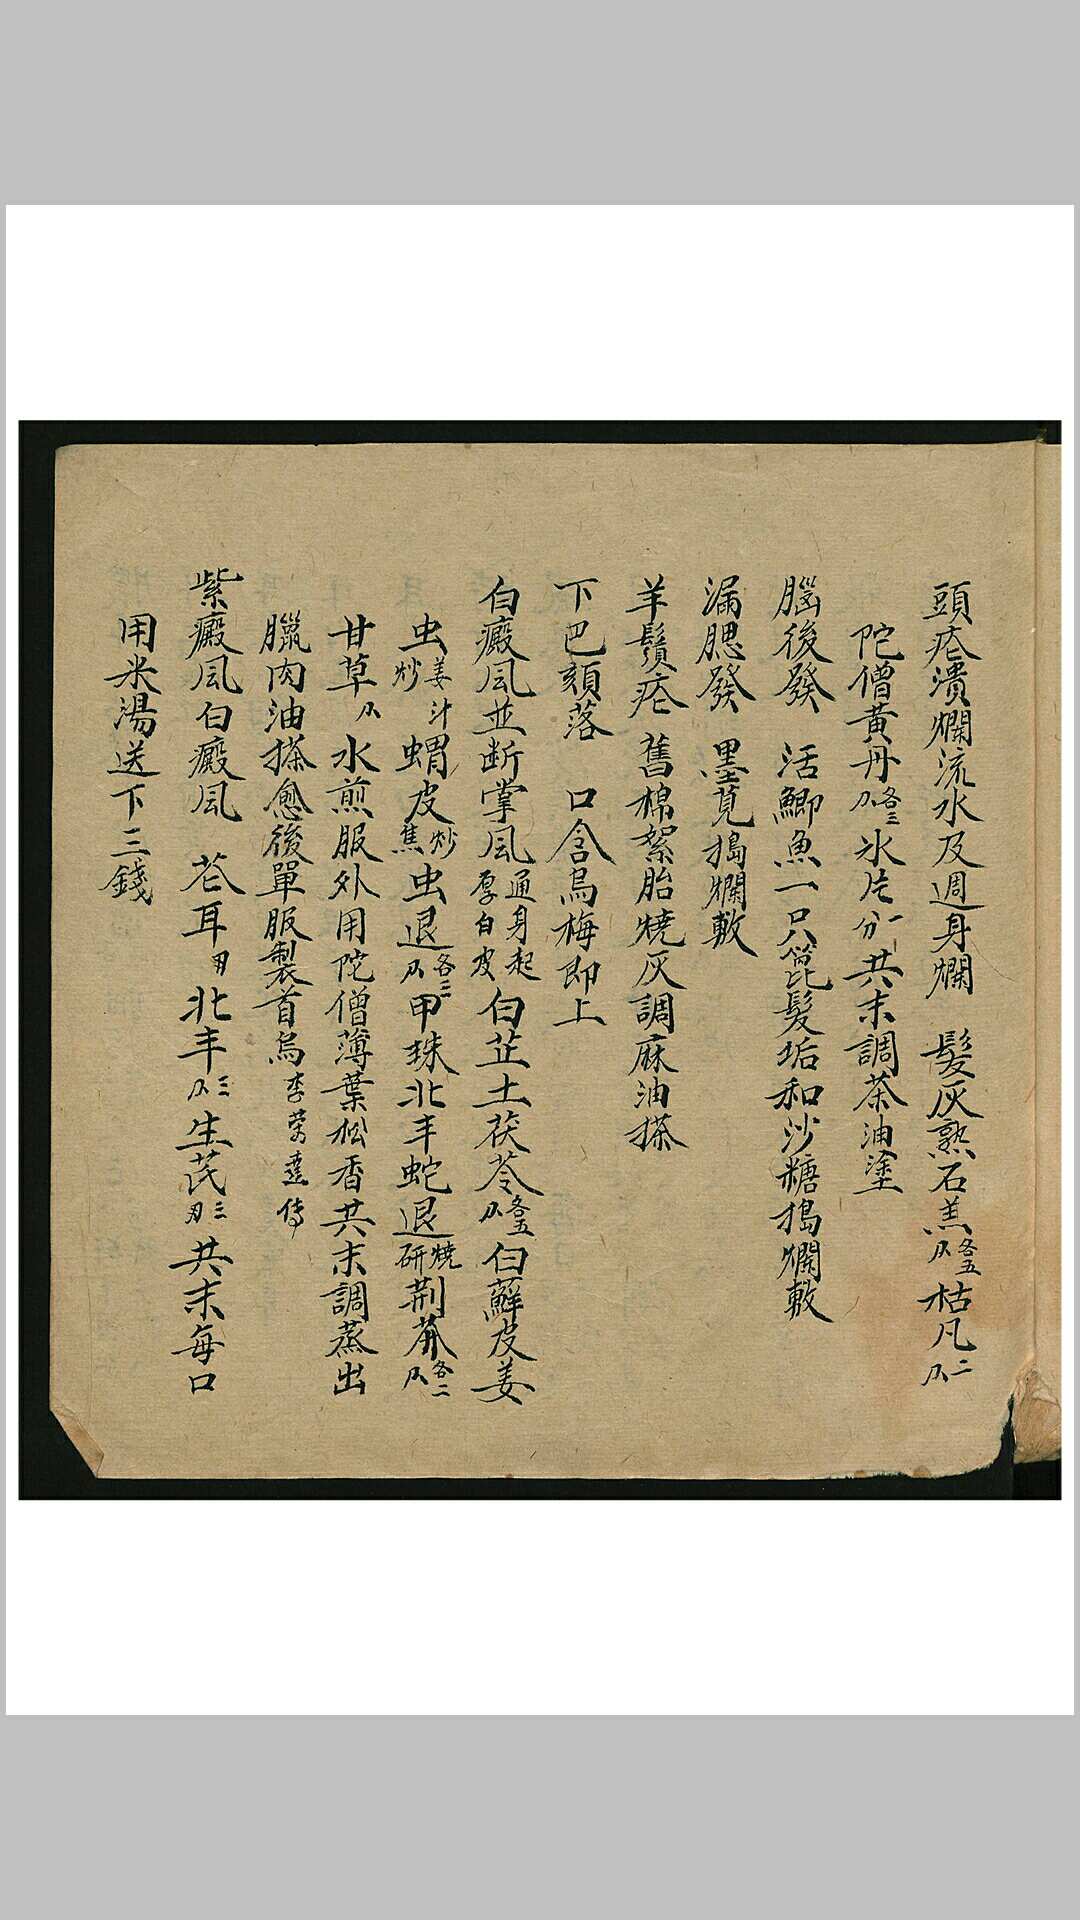 頭疮潰爛流水及週身爛　髮灰熟石羔各五爪枯凡二爪
陀僧黄丹各三爪氷片一分共末調茶油塗
腦後發　活鯽魚一只篦髮垢和沙糖搗爛敷
漏腮發　墨莧搗爛敷
羊鬚疮　舊棉絮胎燒灰調麻油搽
下巴頦落　口含烏梅即上
白癜風並断掌風通身起厚白皮白芷土茯苓各五爪白蘚皮姜
虫姜汁炒蝟皮炒焦虫退各三爪甲珠北丰蛇退燒研荆芥各二爪
甘草爪水煎服外用陀僧薄葉松香共末調蒸出
臘肉油搽愈後單服製首烏李荣達傳
紫癜風白癜風　苍耳北丰三爪生芪三共末每口
用米湯送下三錢